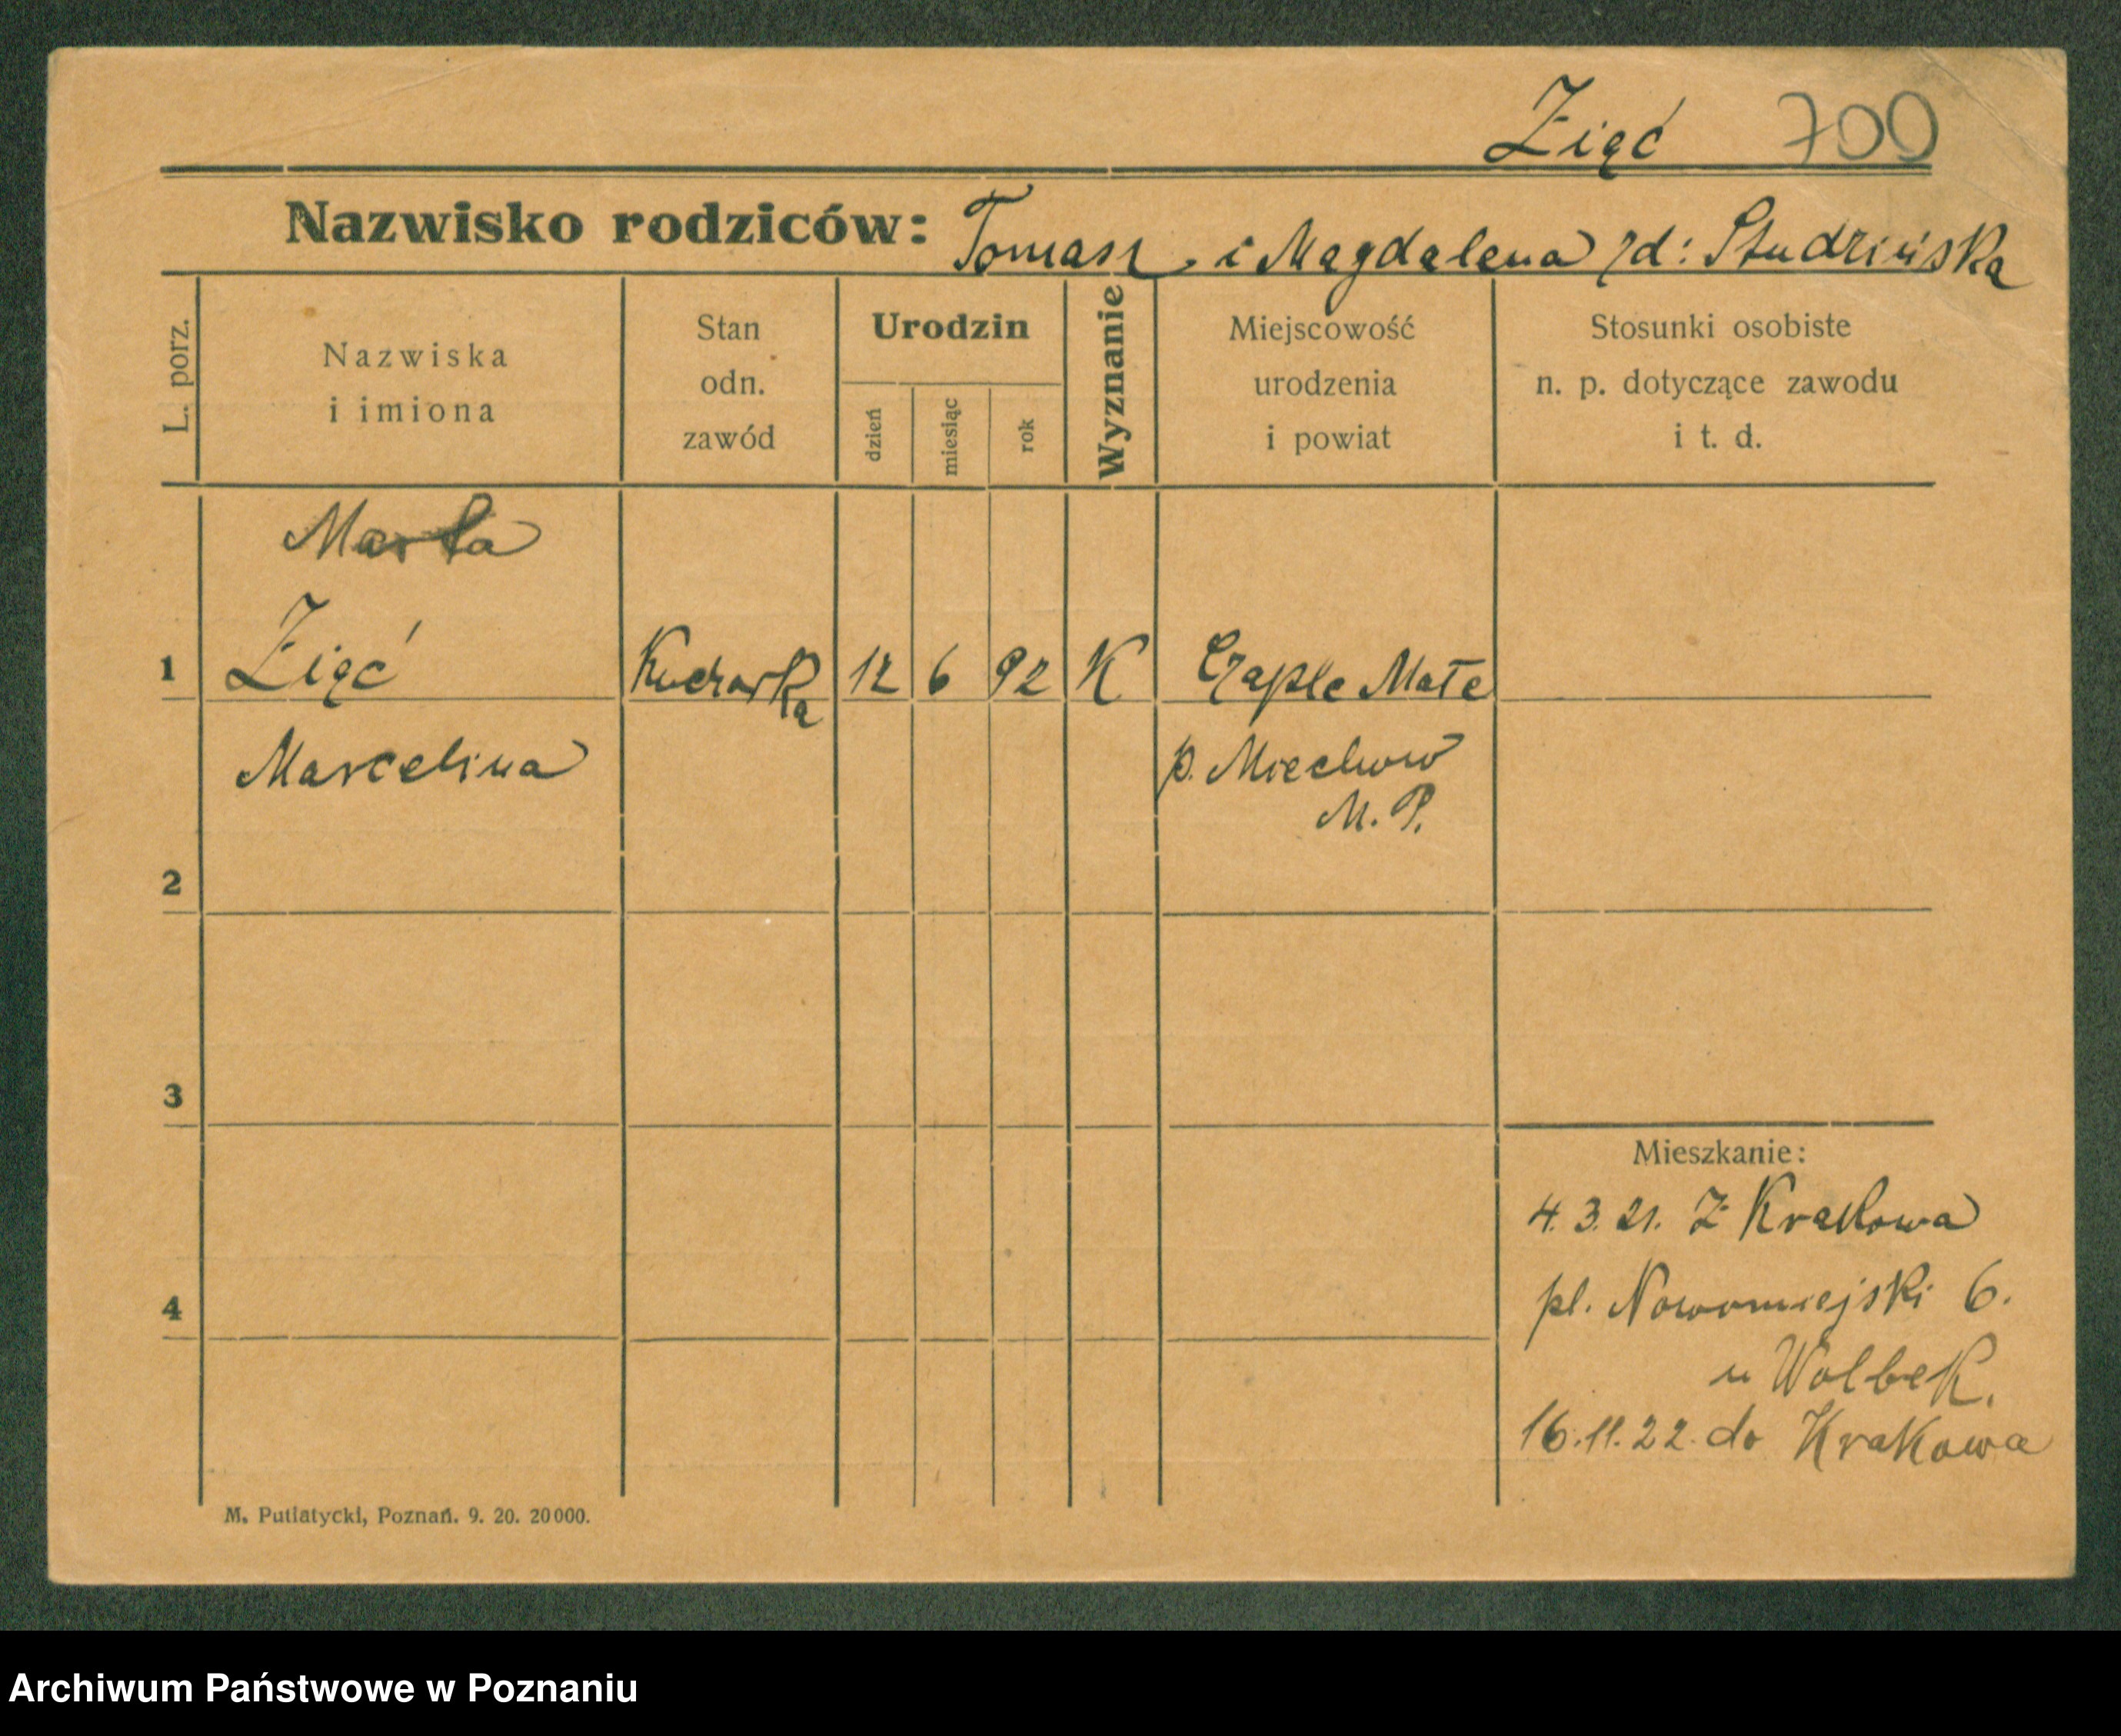 Zięć 700
Nazwisko rodziców: Tomasz i Magdalena rd: Studzińska
L. porz.
Nazwiska
i imiona
Stan
odn.
zawód
Urodzin
dzień
miesiąc
rok
Wyznanie
Miejscowość
urodzenia
i powiat
Stosunki osobiste
n. p. dotyczące zawodu
i t. d.
Marta
1 Zięć Kucharka 12 6 92 K Czaple Małe
Marcelina p. Miechów
M. P.
2
3
Mieszkanie:
4.3.21. Z Krakowa
4 pl. Nowomiejski 6.
u Wolbek.
16.11.22. do Krakowa
M. Putiatycki, Poznań. 9. 20. 20000.
Archiwum Państwowe w Poznaniu